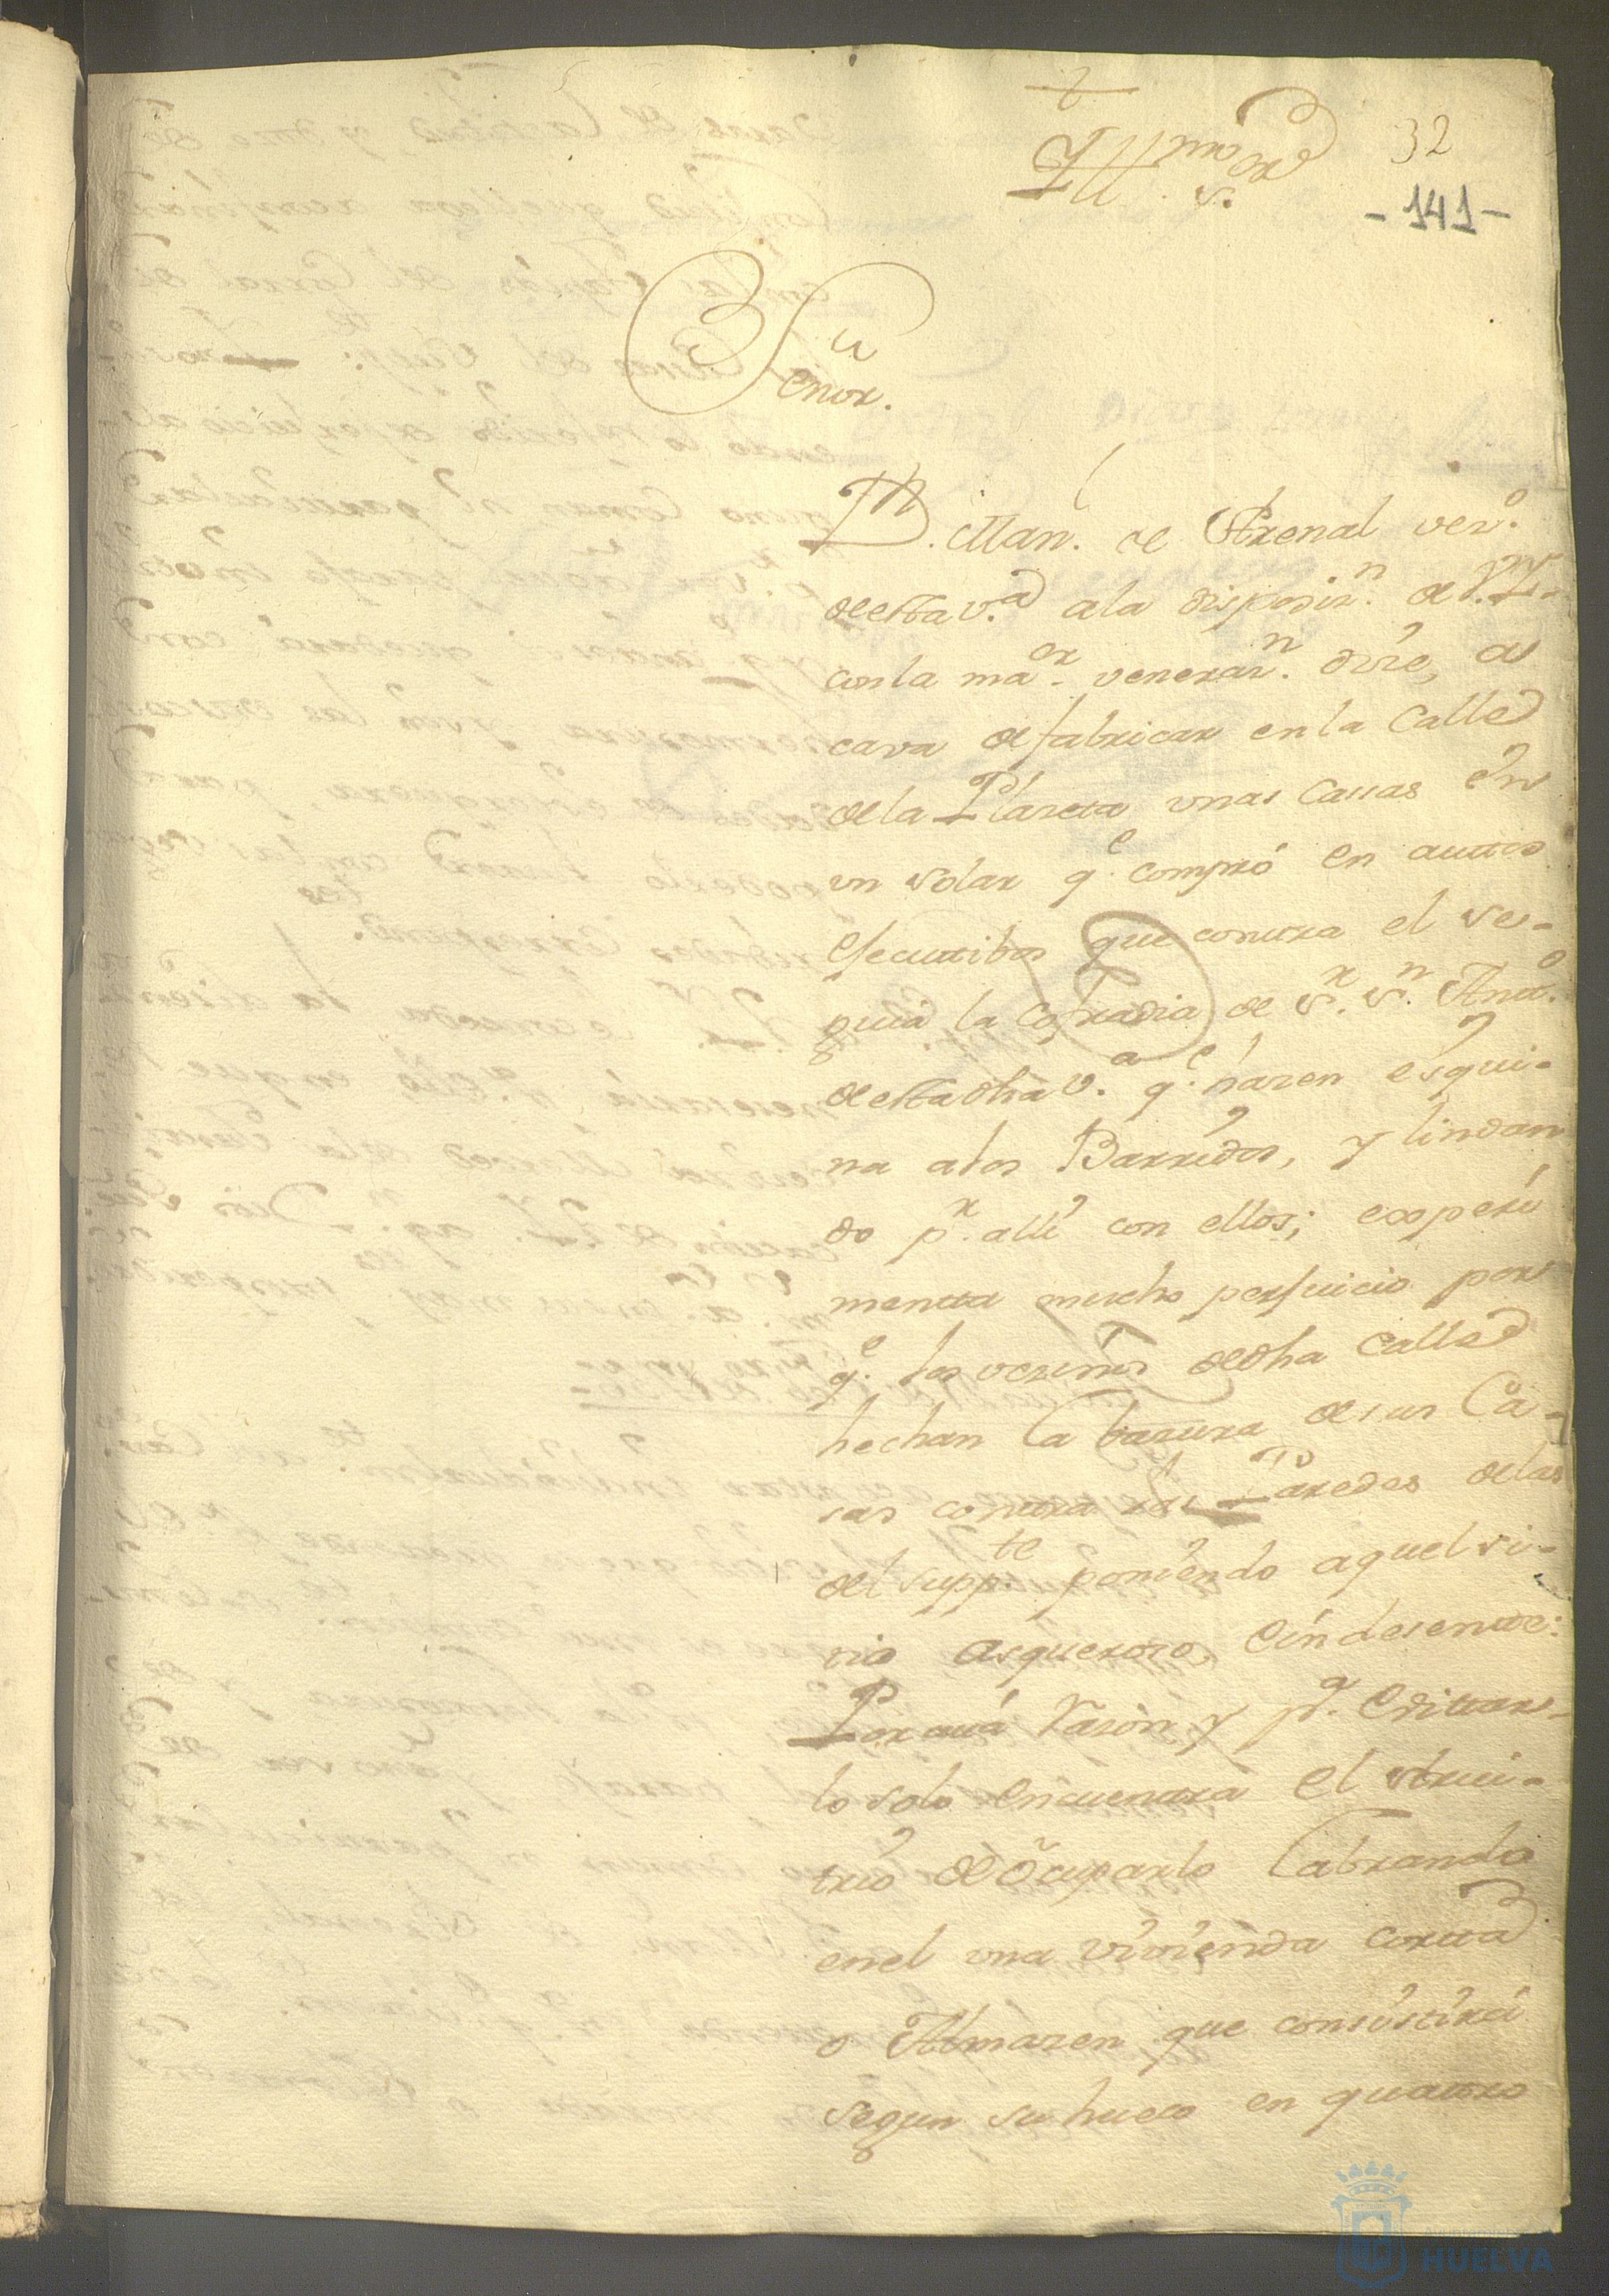 Ill.mo S.or
32
-141-
Señor.
D. Man.l de Arenal vez.o
de esta v.a a la disposiz.n de V.I.
con la ma.or veneraz.n dize, a
cava de fabricar en la Calle
de la Plazeta unas Casas en
un solar q.e compró en auttos
ejecuttibos que conttra el se-
guia la Cofradia de S.r S.n Antt.o
de esta dha v.a q.e hazen esqui-
na a los Barridos, y lindan
do p.r alli con ellos; experi
mentta mucho perjuicio por
q.e los vezinos de dha Calle
hechan la bazura de sus Ca-
sas conttra las Paredes de las
del supp.te poniendo aquel si-
tio asqueroso, e indesentte:
Por cuia razon y p.a evittar-
lo solo encuenttra el
de ocuparlo labrando
en el una vivienda cortta
o Almazen que consistirá
segun su hueco en quattro
HUELVA